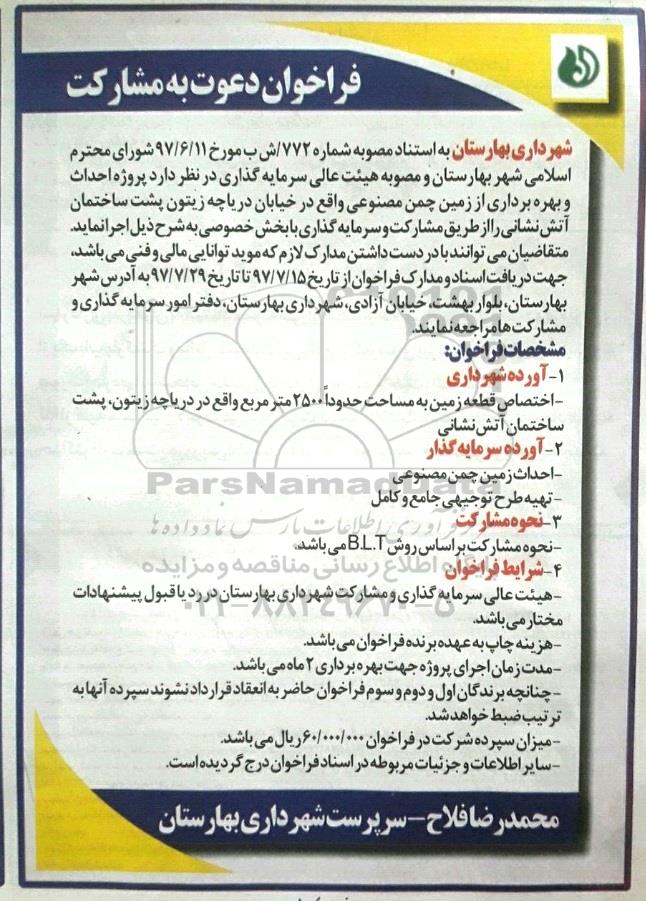 فراخوان دعوت به مشارکت
شهرداری بهارستان به استناد مصوبه شماره ۷۷۲/ش ب مورخ ۹۷/۶/۱۱ شورای محترم
اسلامی شهر بهارستان و مصوبه هیئت عالی سرمایه گذاری در نظر دارد پروژه احداث
و بهره برداری از زمین چمن مصنوعی واقع در خیابان دریاچه زیتون پشت ساختمان
آتش نشانی را از طریق مشارکت و سرمایه گذاری با بخش خصوصی به شرح ذیل اجرا نماید.
متقاضیان می توانند با در دست داشتن مدارک لازم که موید توانایی مالی و فنی می باشد،
جهت دریافت اسناد و مدارک فراخوان از تاریخ ۹۷/۷/۱۵ تا تاریخ ۹۷/۷/۲۹ به آدرس شهر
بهارستان، بلوار بهشت، خیابان آزادی، شهرداری بهارستان، دفتر امور سرمایه گذاری و
مشارکت ها مراجعه نمایند.
مشخصات فراخوان:
۱-آورده شهرداری
-اختصاص قطعه زمین به مساحت حدوداً ۲۵۰۰ متر مربع واقع در دریاچه زیتون، پشت
ساختمان آتش نشانی
۲-آورده سرمایه گذار
-احداث زمین چمن مصنوعی
-تهیه طرح توجیهی جامع و کامل
ParsNamadData
۳-نحوه مشارکت
-نحوه مشارکت بر اساس روش B.L.T می باشد.
پایگاه اطلاع رسانی مناقصه و مزایده
۴-شرایط فراخوان
-هیئت عالی سرمایه گذاری و مشارکت شهرداری بهارستان در رد یا قبول پیشنهادات
۰۲۱-۸۸۳۴۹۶۷۰-۵
مختار می باشد.
-هزینه چاپ به عهده برنده فراخوان می باشد.
-مدت زمان اجرای پروژه جهت بهره برداری ۲ ماه می باشد.
-چنانچه برندگان اول و دوم و سوم فراخوان حاضر به انعقاد قرارداد نشوند سپرده آنها به
ترتیب ضبط خواهد شد.
-میزان سپرده شرکت در فراخوان ۶۰/۰۰۰/۰۰۰ ریال می باشد.
-سایر اطلاعات و جزئیات مربوطه در اسناد فراخوان درج گردیده است.
محمدرضا فلاح-سرپرست شهرداری بهارستان